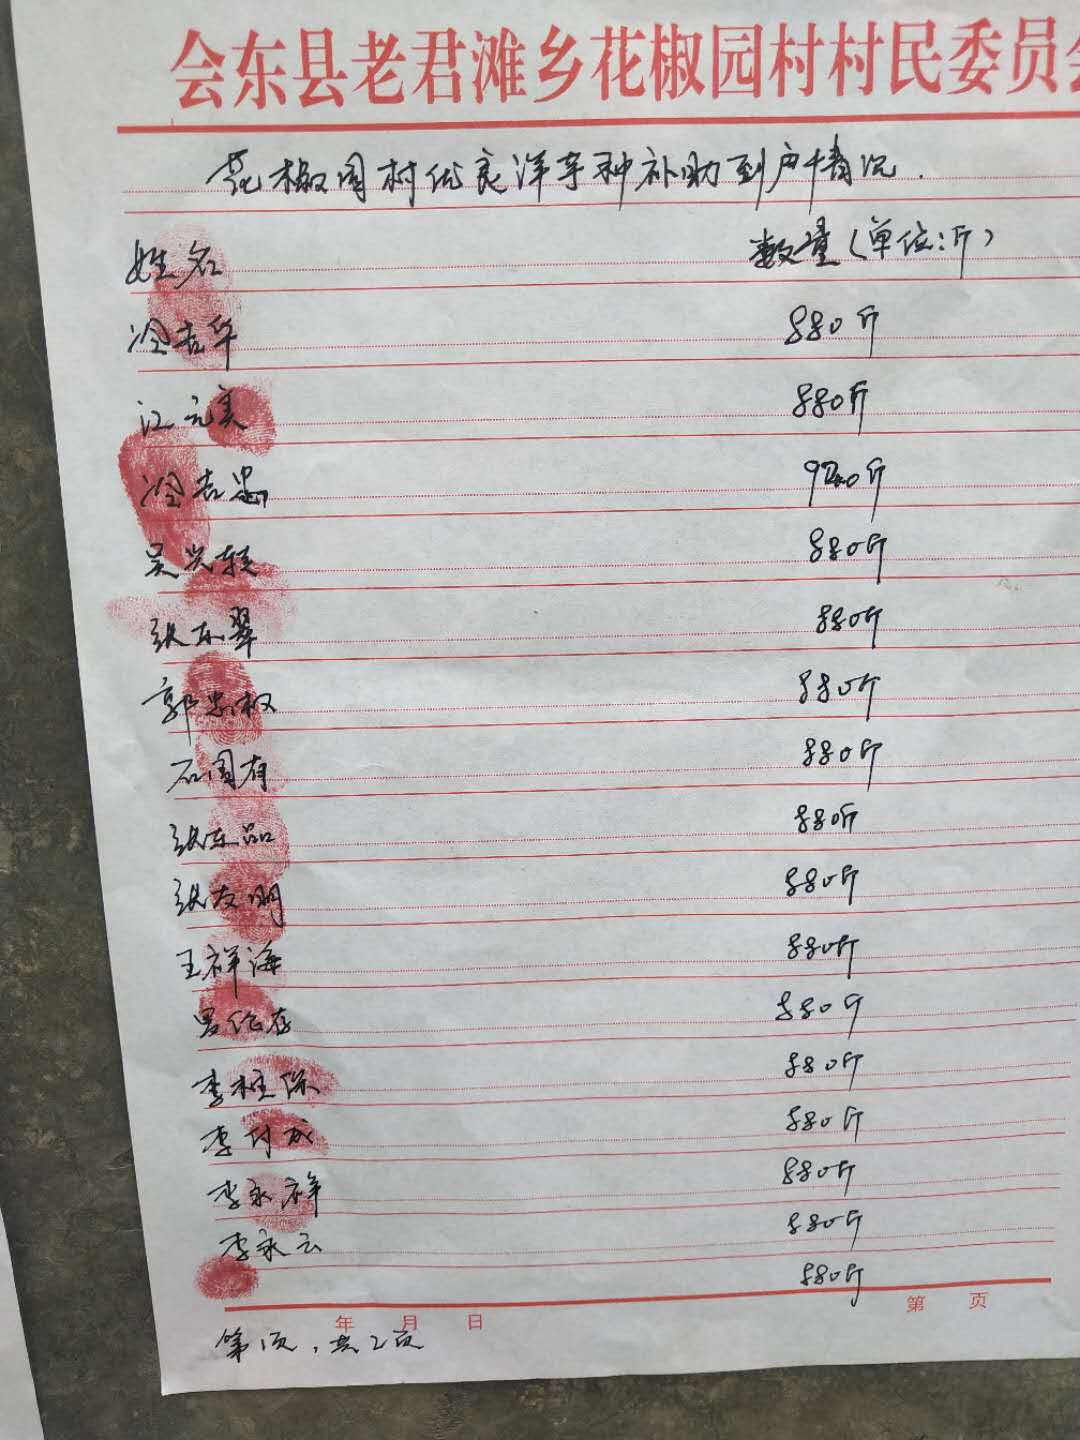 会东县老君滩乡花椒园村村民委员会
花椒园村优良洋芋种补助到户情况.
姓名 数量(单位:斤)
冷吉华 880斤
江元美 880斤
冷吉忠 940斤
吴兴 880斤
张东翠 880斤
郭忠权 880斤
石国有 880斤
张东品 880斤
张友明 880斤
王祥海 880斤
罗 存 880斤
李桂保 880斤
李付成 880斤
李永祥 880斤
李永云 880斤
880斤
年 月 日 第 页
第1页,共2页